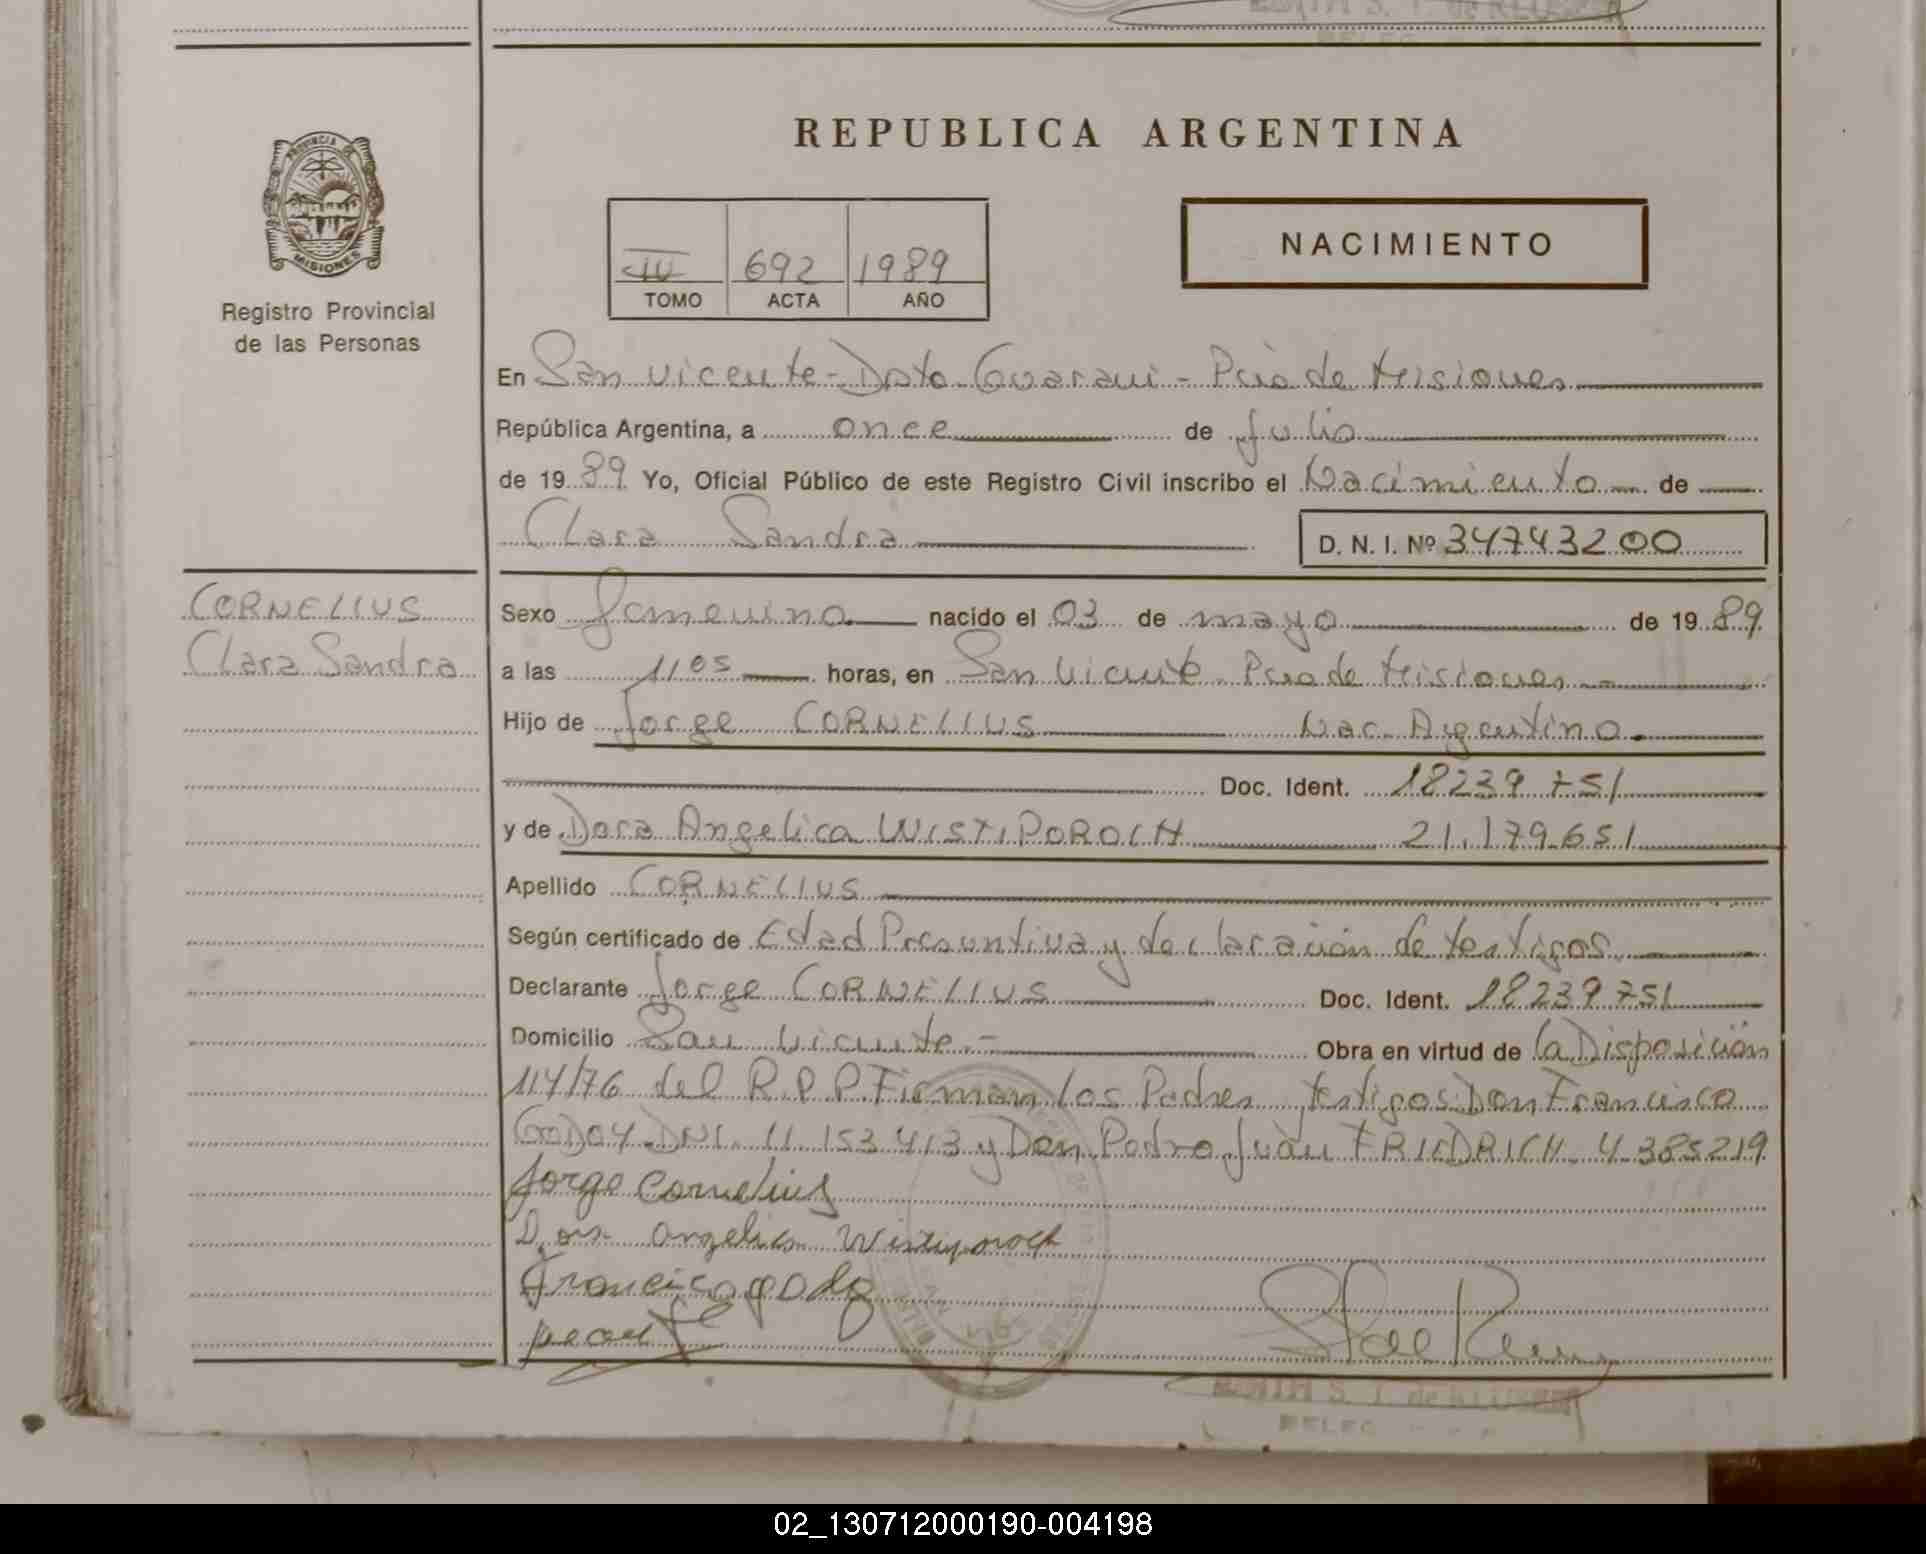 REPUBLICA ARGENTINA
PROVINCIA DE
MISIONES
Registro Provincial
de las Personas
NACIMIENTO
692 1989
TOMO ACTA AÑO
En San Vicente - Dpto Guarani - Pcia de Misiones
República Argentina, a once de Julio
de 1989 Yo, Oficial Público de este Registro Civil inscribo el Nacimiento de
Clara Sandra D. N. I. Nº 34743200
CORNELIUS
Clara Sandra
Sexo femenino nacido el 03 de mayo de 1989
a las 11 05 horas, en San Vicente Pcia de Misiones
Hijo de Jorge CORNELIUS Nac. Argentino.
Doc. Ident. 18239751
y de Dora Angelica WISTIPOROCH 21.179.651
Apellido CORNELIUS
Según certificado de Edad Presuntiva y declaración de testigos
Declarante Jorge CORNELIUS Doc. Ident. 18239751
Domicilio San Vicente.- Obra en virtud de la Disposición
114/76 del R.P.P. Firman los Padres testigos Don Francisco
GODOY DNI. 11.153.413 y Don Pedro Juan FRIEDRICH 4.385219
Jorge Cornelius
Dora Angelica Wistiporoch
Francisco godoy
02_130712000190-004198